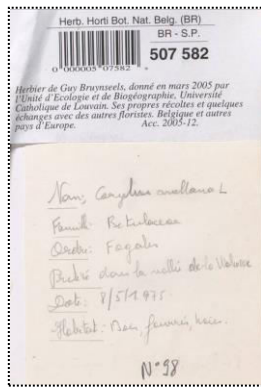 Herb. Horti Bot. Nat. Belg. (BR)
BR - S.P.
507 582
0 000005 07582
Herbier de Guy Bruynseels, donné en mars 2005 par
l'Unité d'Ecologie et de Biogéographie, Université
Catholique de Louvain. Ses propres récoltes et quelques
échanges avec des autres floristes. Belgique et autres
pays d'Europe. Acc. 2005-12.
Nom, Corylus avellana L
Famille: Betulaceae
Ordre: Fagales
dans la vallée de la
Date: 8/5/1975
Habitat: Bois, fourrés, haies.
N° 98